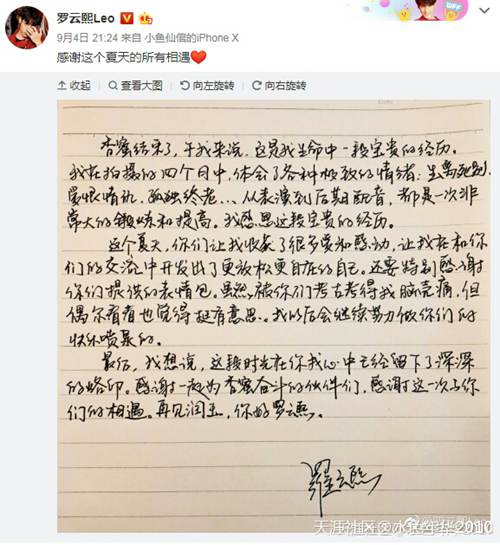 罗云熙Leo
9月4日 21:24 来自 小鱼仙倌的iPhone X
感谢这个夏天的所有相遇
收起 查看大图 向左旋转 向右旋转
香蜜结束了，于我来说，这是我生命中一段宝贵的经历。
我在拍摄的四个月中，体会了各种极致的情绪：生离死别，
爱恨情仇，孤独终老…从表演到后期配音，都是一次非
常大的锻炼和提高。我感恩这段宝贵的经历。
这个夏天，你们让我收获了很多爱和感动，让我在和你
们的交流中开发出了更放松更自在的自己。还要特别感谢
你们提供的表情包。虽然被你们考古考得我脑壳痛，但
偶尔看看也觉得挺有意思。我以后会继续努力做你们的
快乐喷泉的。
最后，我想说，这段时光在你我心中已经留下了深深
的烙印。感谢一起为香蜜奋斗的伙伴们，感谢这一次与你
们的相遇。再见润玉，你好罗云熙。
羅云熙
天涯社区@水长年年_2010